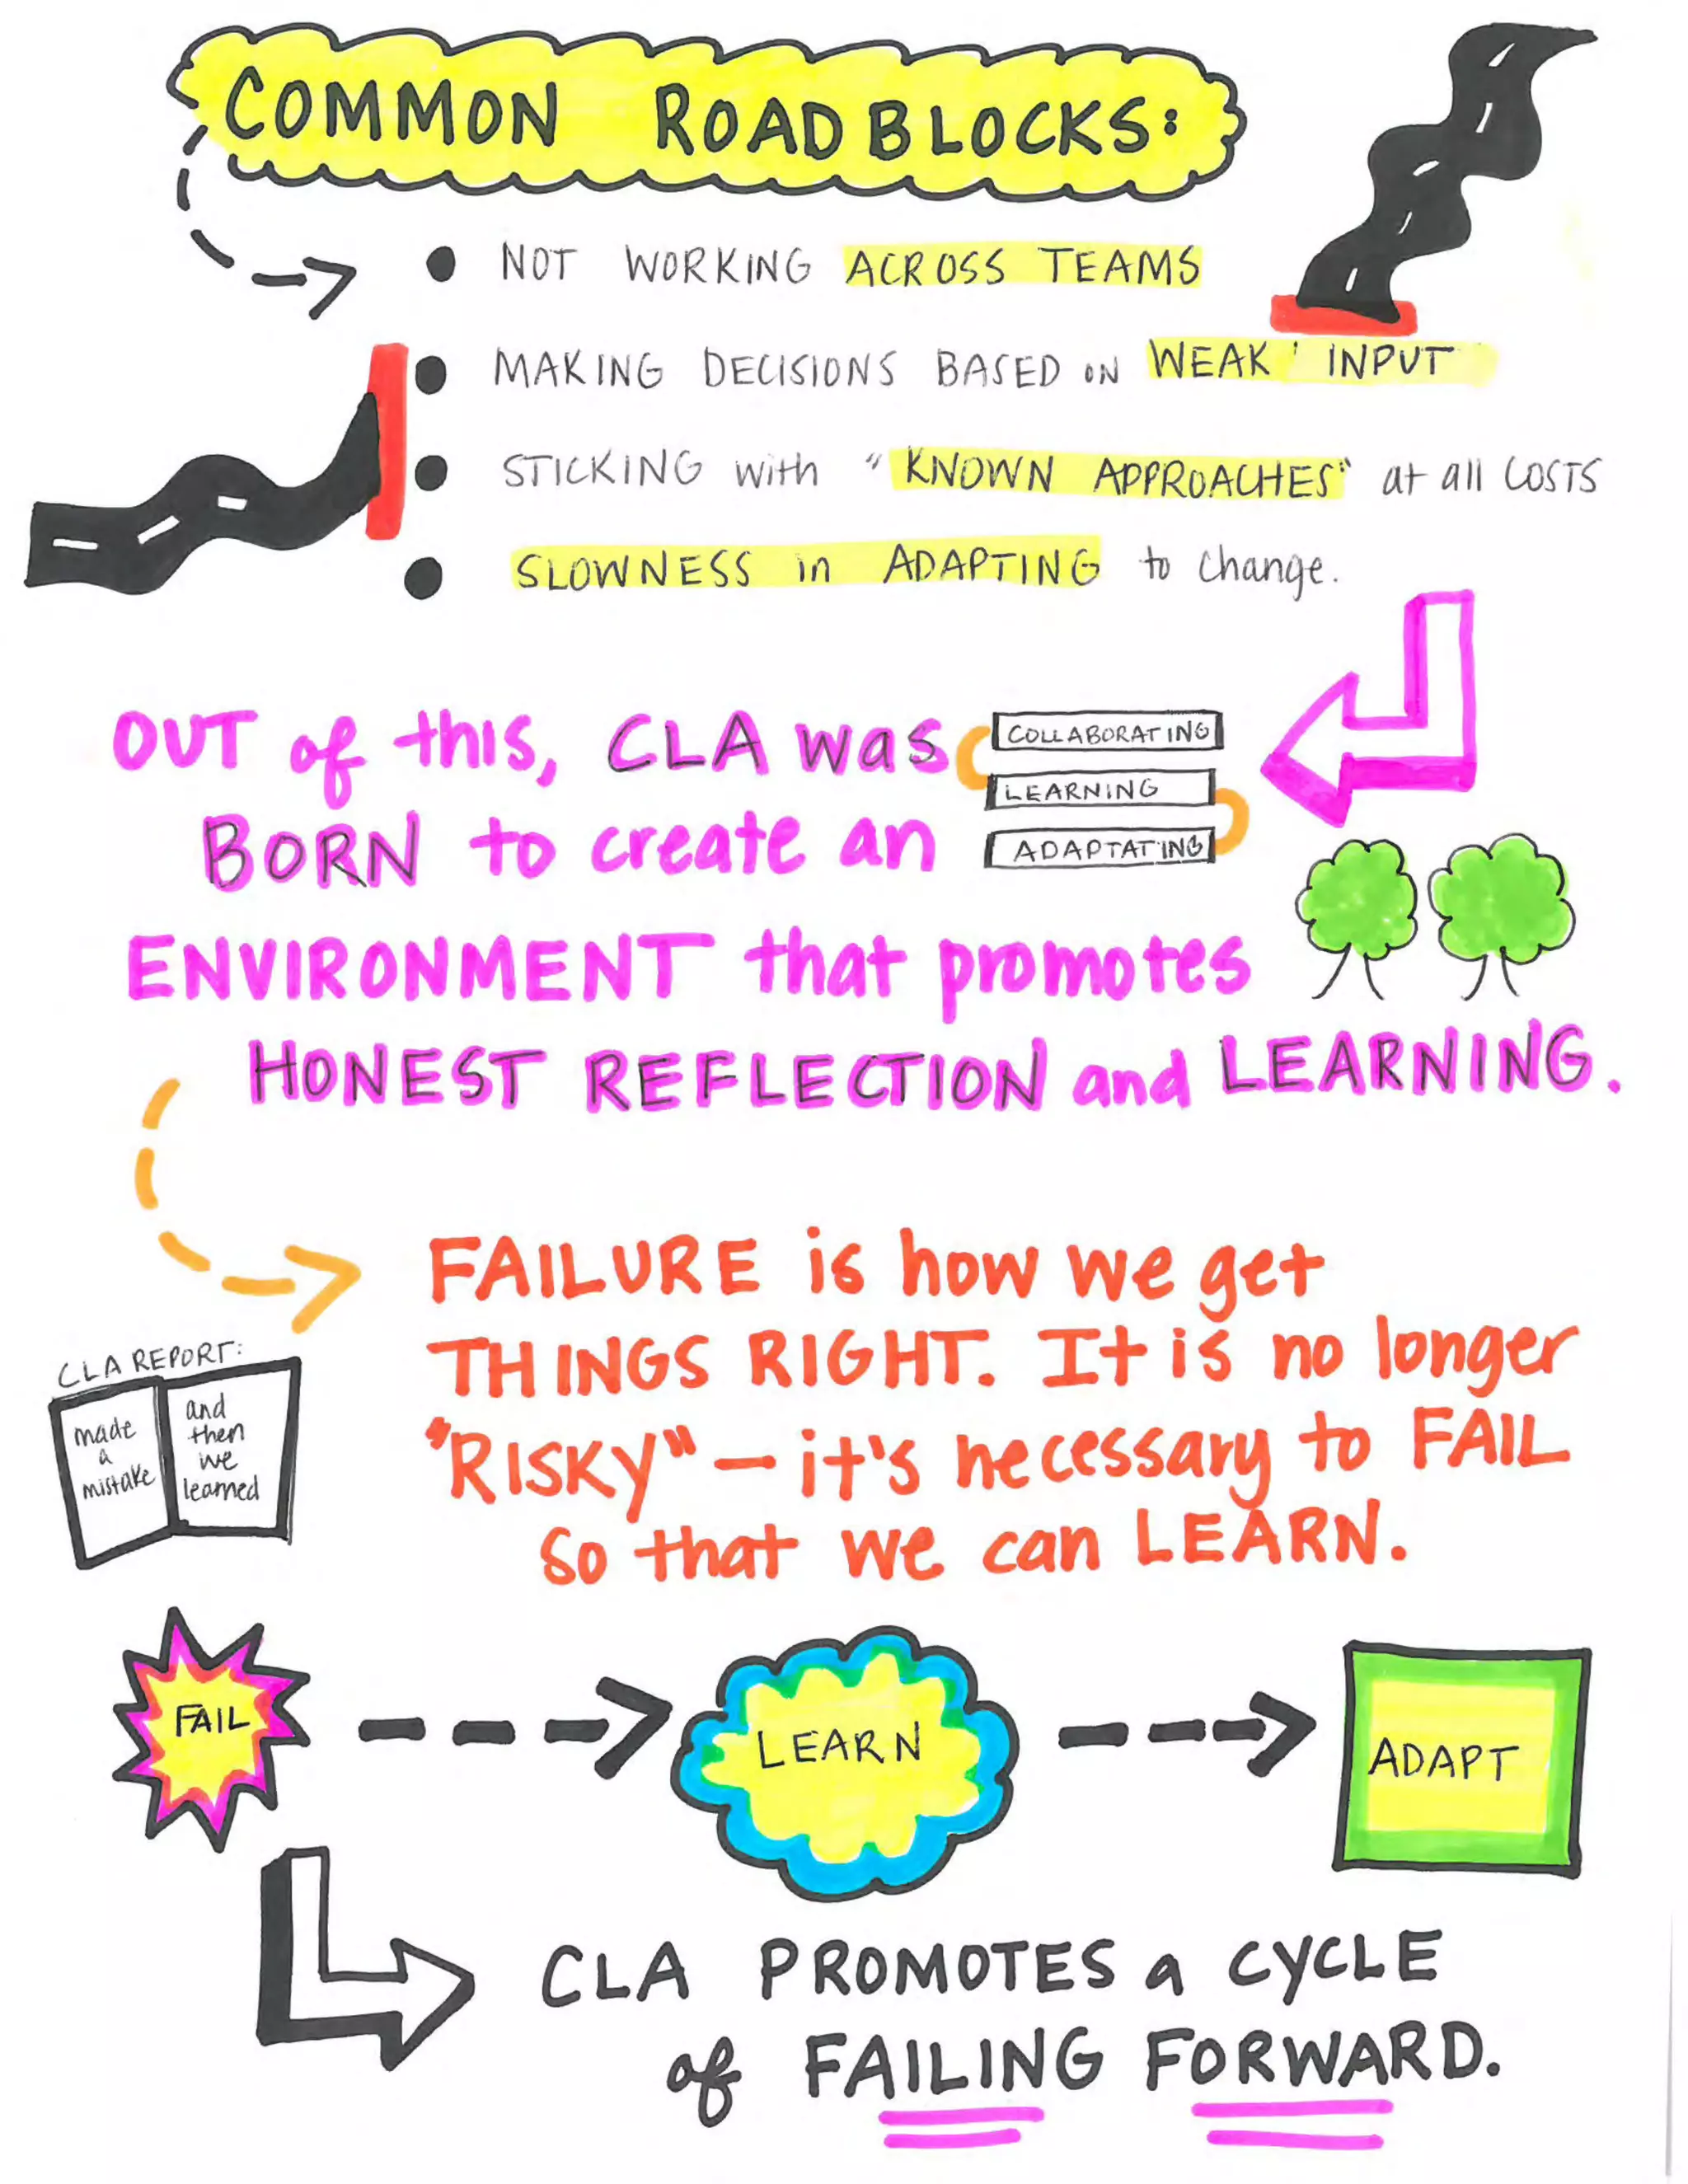 COMMON ROADBLOCKS:
• NOT WORKING ACROSS TEAMS
• MAKING DECISIONS BASED ON WEAK INPUT
• STICKING with "KNOWN APPROACHES" at all COSTS
• SLOWNESS in ADAPTING to change.
OUT of this, CLA was
BORN to create an
COLLABORATING
LEARNING
ADAPTATING
ENVIRONMENT that promotes
HONEST REFLECTION and LEARNING.
FAILURE is how we get
THINGS RIGHT. It is no longer
"RISKY" – it's necessary to FAIL
so that we can LEARN.
CLA REPORT:
made
a
mistake
and
then
we
learned
FAIL
LEARN
ADAPT
CLA PROMOTES a CYCLE
of FAILING FORWARD.